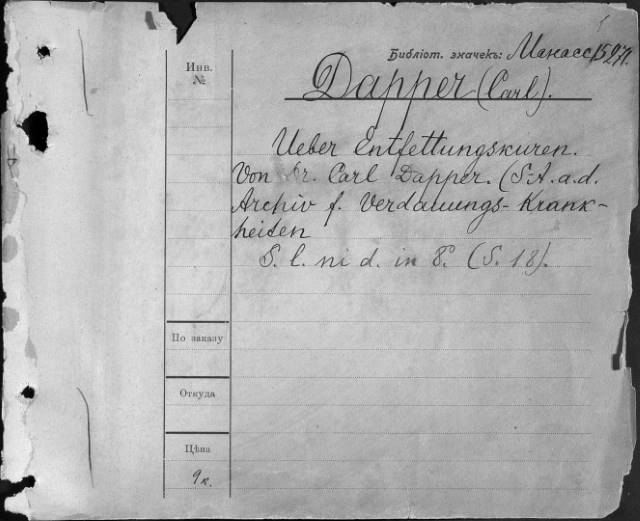 Библіот. значекъ: Манасс. 15271.
Инв.
№
Dapper (Carl).
Ueber Entfettungskuren.
Von Dr. Carl Dapper. (S.A.a.d.
Archiv f. Verdauungs-Krank-
heiten
S. l. ni d. in 8°. (S. 18).
По заказу
Откуда
Цѣна
9 к.